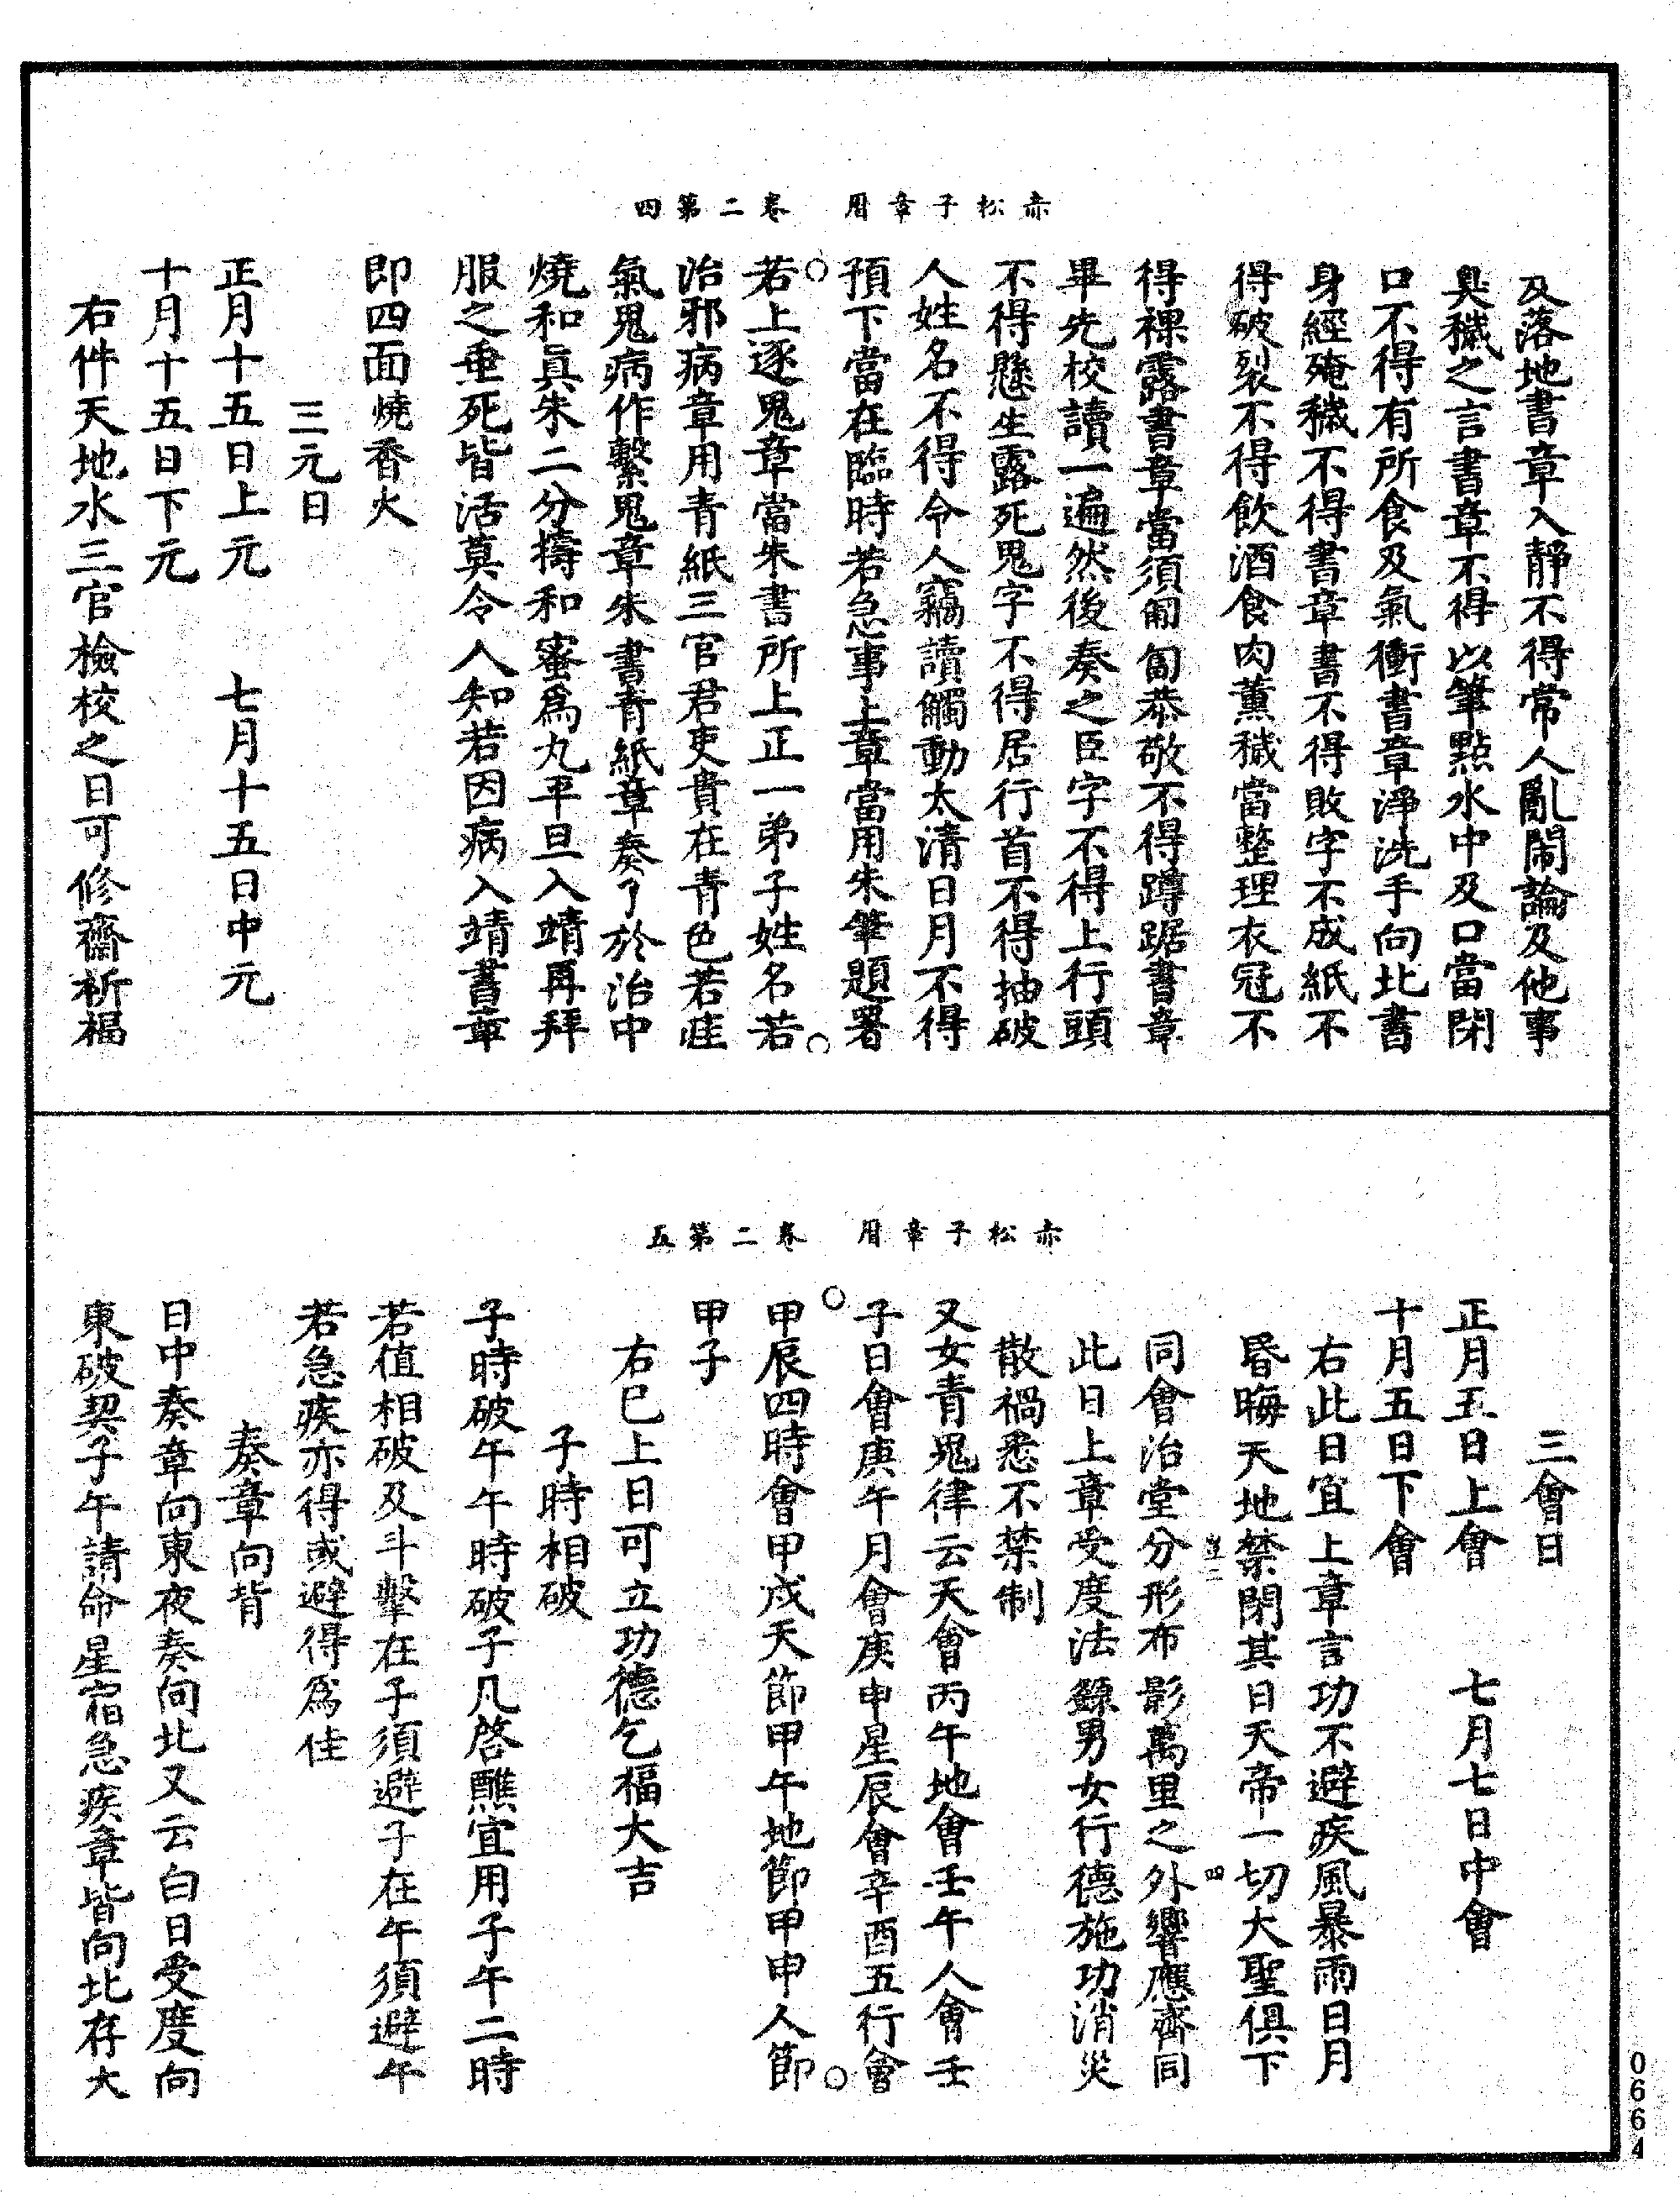 赤松子章曆　卷二第四
及落地書章入靜不得常人亂鬧論及他事
臭穢之言書章不得以筆點水中及口當閉
口不得有所食及氣衝書章淨洗手向北書
身經殗穢不得書章書不得敗字不成紙不
得破裂不得飲酒食肉薰穢當整理衣冠不
得裸露書章當須匍匐恭敬不得蹲踞書章
畢先校讀一遍然後奏之臣字不得上行頭
不得懸生露死鬼字不得居行首不得抽破
人姓名不得令人竊讀觸動太清日月不得
預下當在臨時若急事上章當用朱筆題署
若上逐鬼章當朱書所上正一弟子姓名若
治邪病章用青紙三官君吏貴在青色若疰
氣鬼病作繫鬼章朱書青紙章奏了於治中
燒和真朱二分擣和蜜為丸平旦入靖再拜
服之垂死皆活莫令人知若因病入靖書章
即四面燒香火
三元日
正月十五日上元　七月十五日中元
十月十五日下元
右件天地水三官檢校之日可修齋祈福
赤松子章曆　卷二第五
三會日
正月五日上會　七月七日中會
十月五日下會
右此日宜上章言功不避疾風暴雨日月
昏晦天地禁閉其日天帝一切大聖俱下
四
同會治堂分形布影萬里之外響應齊同
此日上章受度法籙男女行德施功消災
散禍悉不禁制
又女青鬼律云天會丙午地會壬午人會壬
子日會庚午月會庚申星辰會辛酉五行會
甲辰四時會甲戌天節甲午地節甲申人節
甲子
右巳上日可立功德乞福大吉
子時相破
子時破午午時破子凡啓醮宜用子午二時
若值相破及斗擊在子須避子在午須避午
若急疾亦得或避得為佳
奏章向背
日中奏章向東夜奏向北又云白日受度向
東破契子午請命星宿急疾章皆向北存大
0664